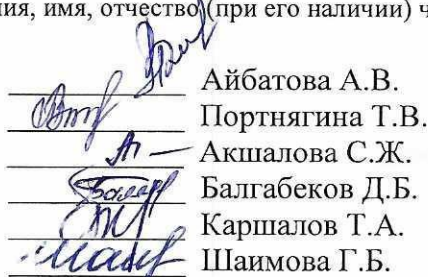 ия, имя, отчество (при его наличии) ч
Айбатова А.В.
Портнягина Т.В.
Акшалова С.Ж.
Балгабеков Д.Б.
Каршалов Т.А.
Шаимова Г.Б.